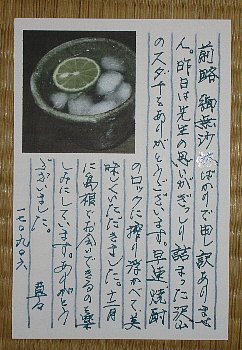 前略 御無沙汰ばかりで申し訳ありませ
ん。昨日は先生の思いがぎっしり詰まった沢山
のスダチをありがとうございます。早速焼酎
のロックに搾り浮かべて美
味しくいただきました。十二月
に島根でお会いできるの楽
しみにしています。ありがとう
ございました。
草々